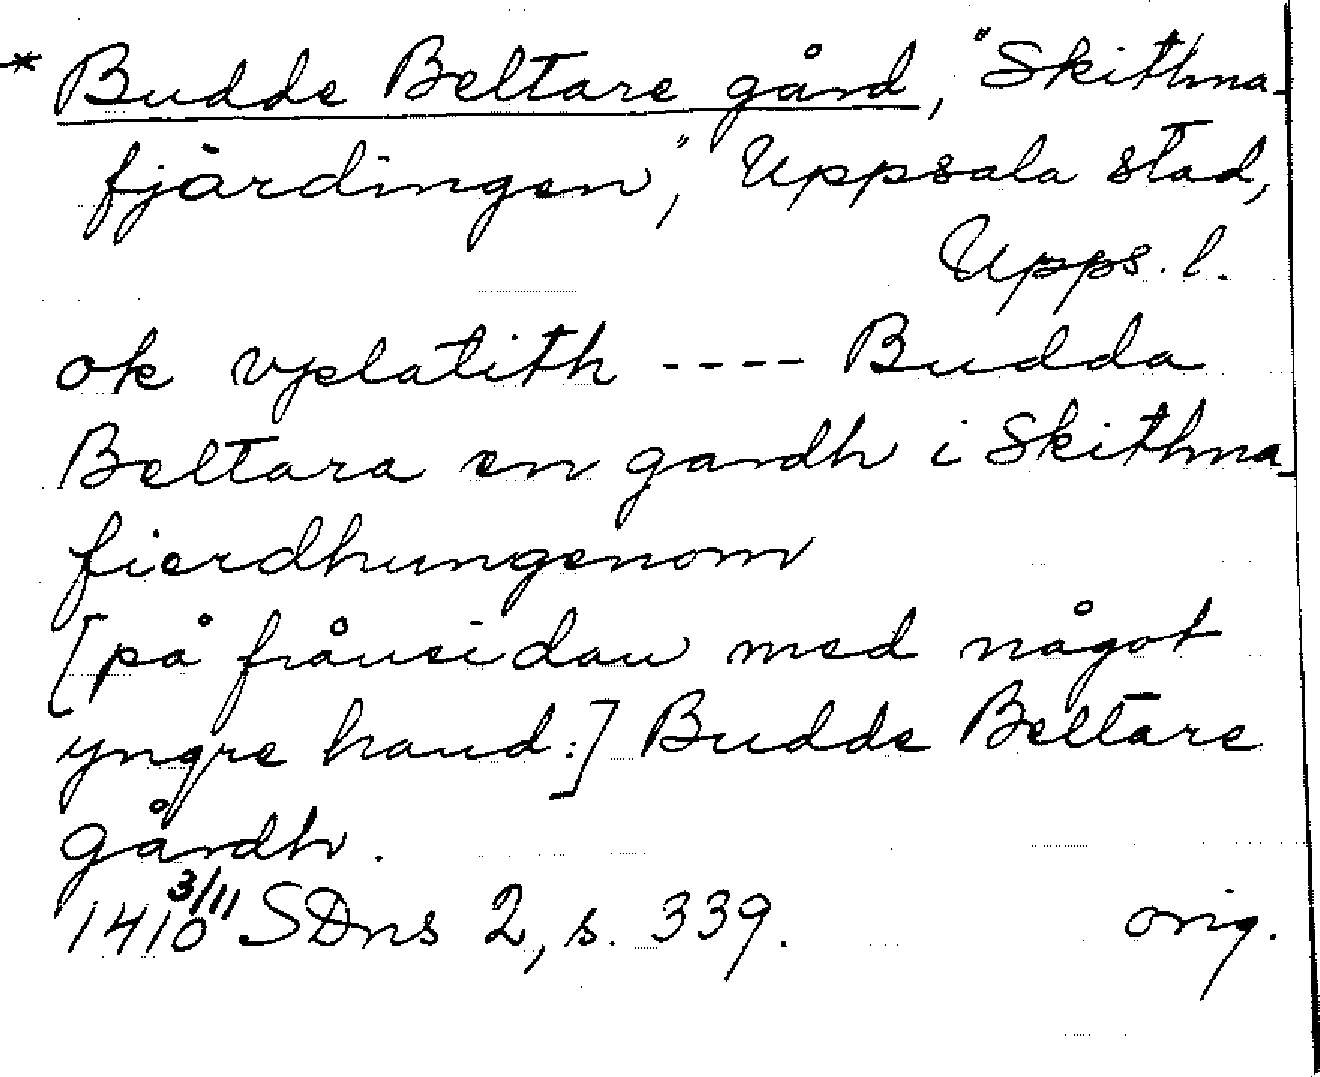 * Budde Beltare gård, "Skithna-
fjärdingen", Uppsala stad,
Upps. l.
ok vplatith ---- Budda
Beltara en gardh i Skithna-
fierdhungenom
[på frånsidan med något
yngre hand:] Budde Beltare
gårdh.
1410 3/11 SDns 2, s. 339. orig.